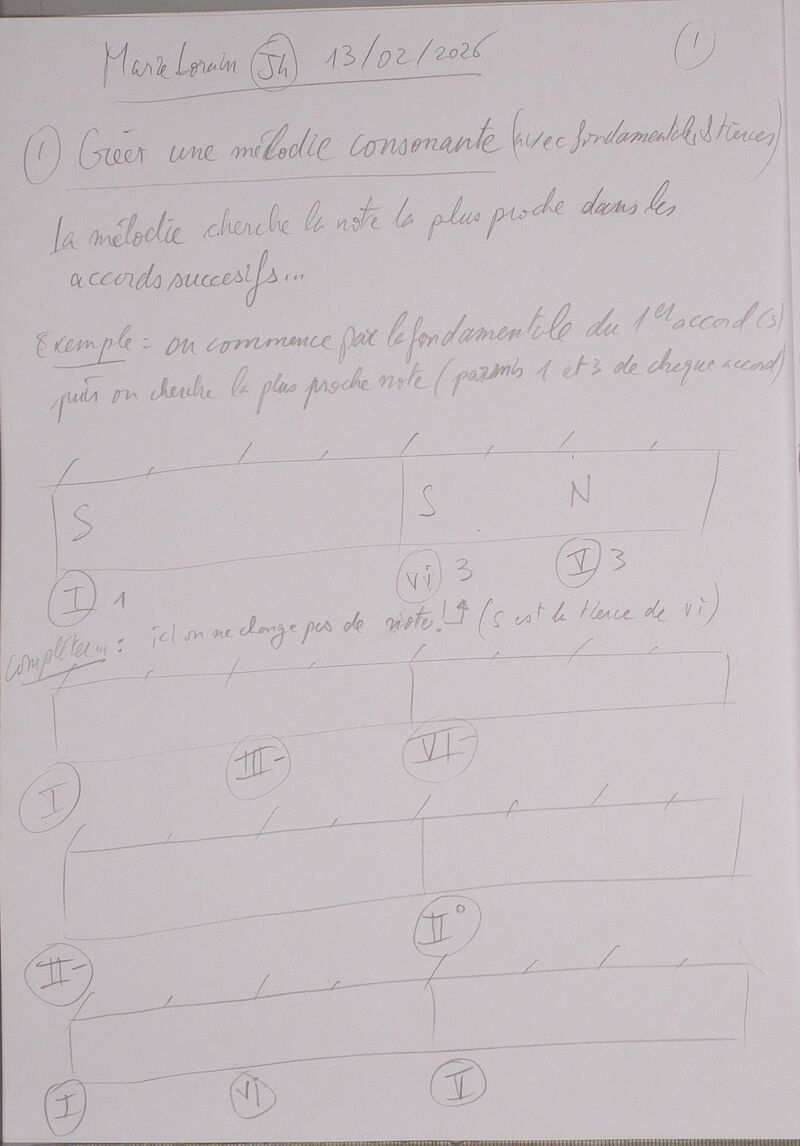 Marie Lorain Jh 13/02/2026
1
1 Créer une mélodie consonante (avec fondamentale & tierces)
La mélodie cherche la note la plus proche dans les
accords succesifs...
Exemple = on commence par la fondamentale du 1er accord (S)
puis on cherche la plus proche note (parmis 1 et 3 de chaque accord)
S S N
I 1 vi 3 V 3
complèter... : ici on ne change pas de note! (S est la tierce de vi)
I III- VI-
II- II°
I vi V